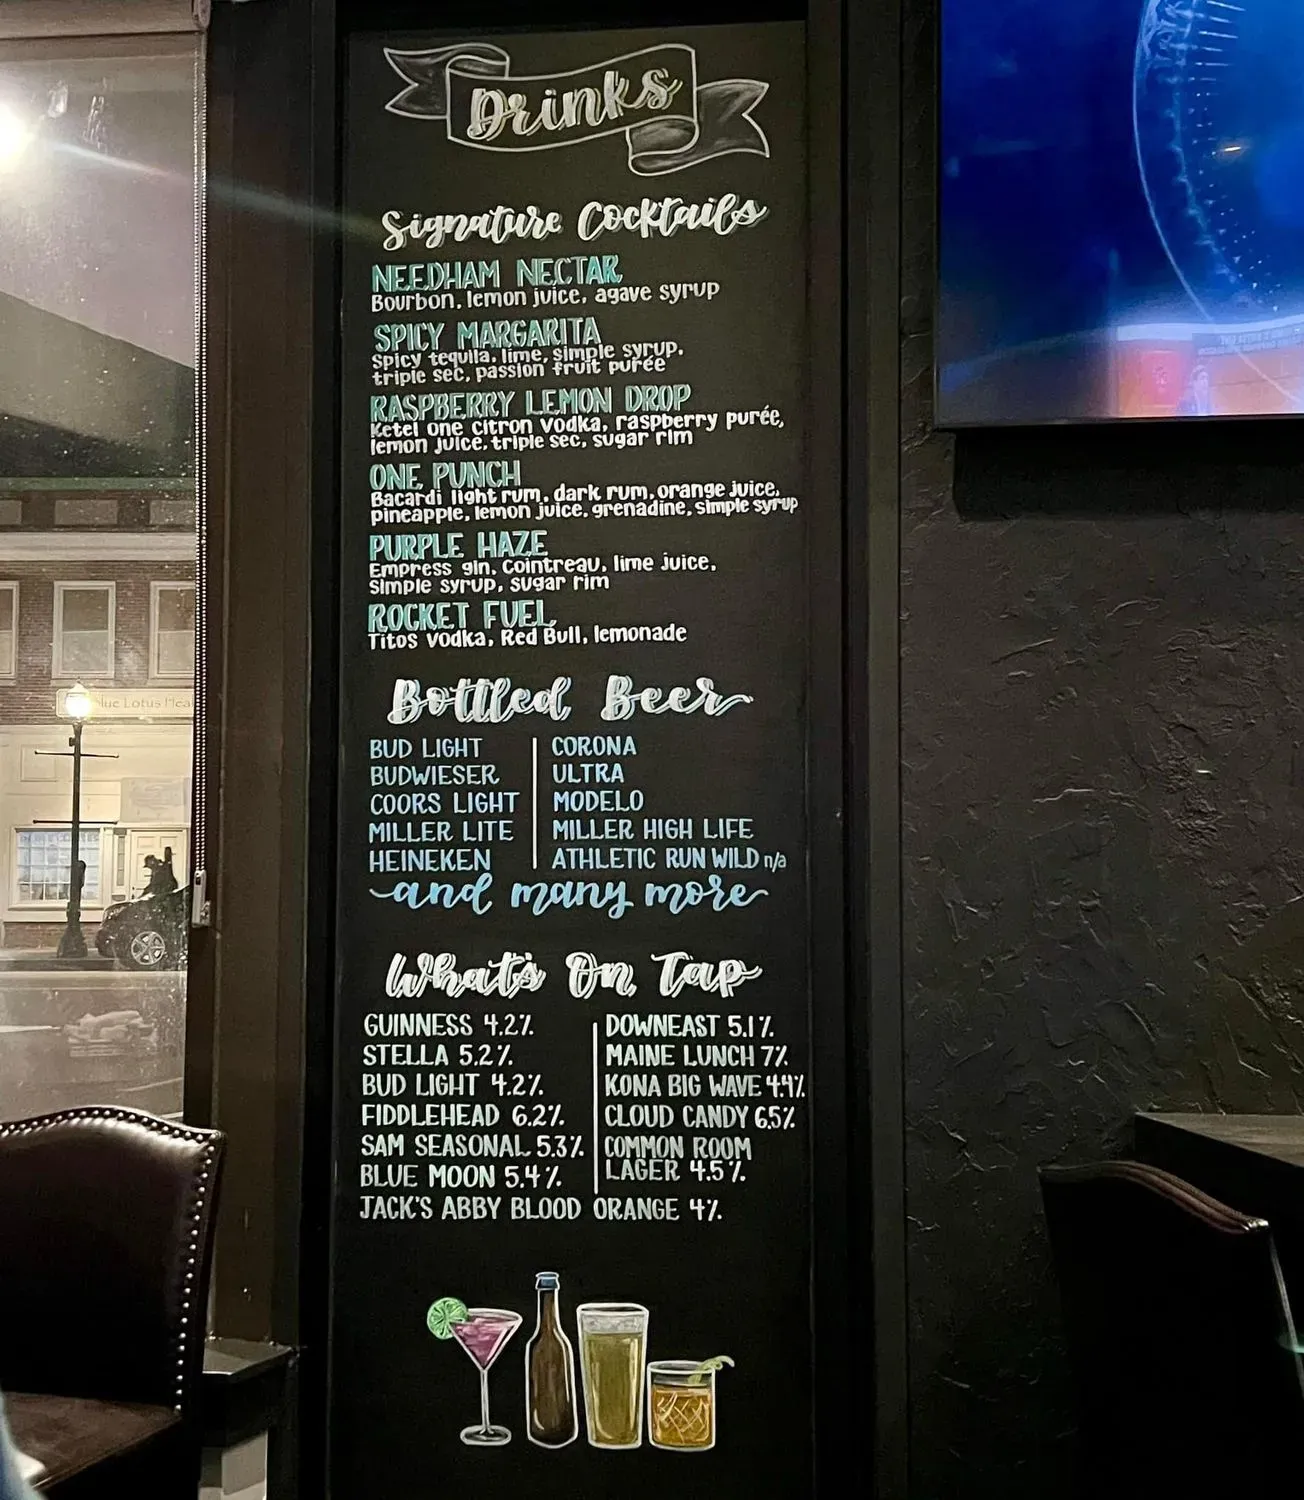 Drinks
Signature Cocktails
NEEDHAM NECTAR
Bourbon, lemon juice, agave syrup
SPICY MARGARITA
Spicy tequila, lime, simple syrup,
triple sec, passion fruit purée
RASPBERRY LEMON DROP
Ketel one citron vodka, raspberry purée,
lemon juice, triple sec, sugar rim
ONE PUNCH
Bacardi light rum, dark rum, orange juice,
pineapple, lemon juice, grenadine, simple syrup
PURPLE HAZE
Empress gin, Cointreau, lime juice,
simple syrup, sugar rim
ROCKET FUEL
Titos vodka, Red Bull, lemonade
Bottled Beer
BUD LIGHT
BUDWIESER
COORS LIGHT
MILLER LITE
HEINEKEN
CORONA
ULTRA
MODELO
MILLER HIGH LIFE
ATHLETIC RUN WILD n/a
and many more
What's On Tap
GUINNESS 4.2%
STELLA 5.2%
BUD LIGHT 4.2%
FIDDLEHEAD 6.2%
SAM SEASONAL 5.3%
BLUE MOON 5.4%
DOWNEAST 5.1%
MAINE LUNCH 7%
KONA BIG WAVE 4.4%
CLOUD CANDY 6.5%
COMMON ROOM
LAGER 4.5%
JACK'S ABBY BLOOD ORANGE 4%
Lotus